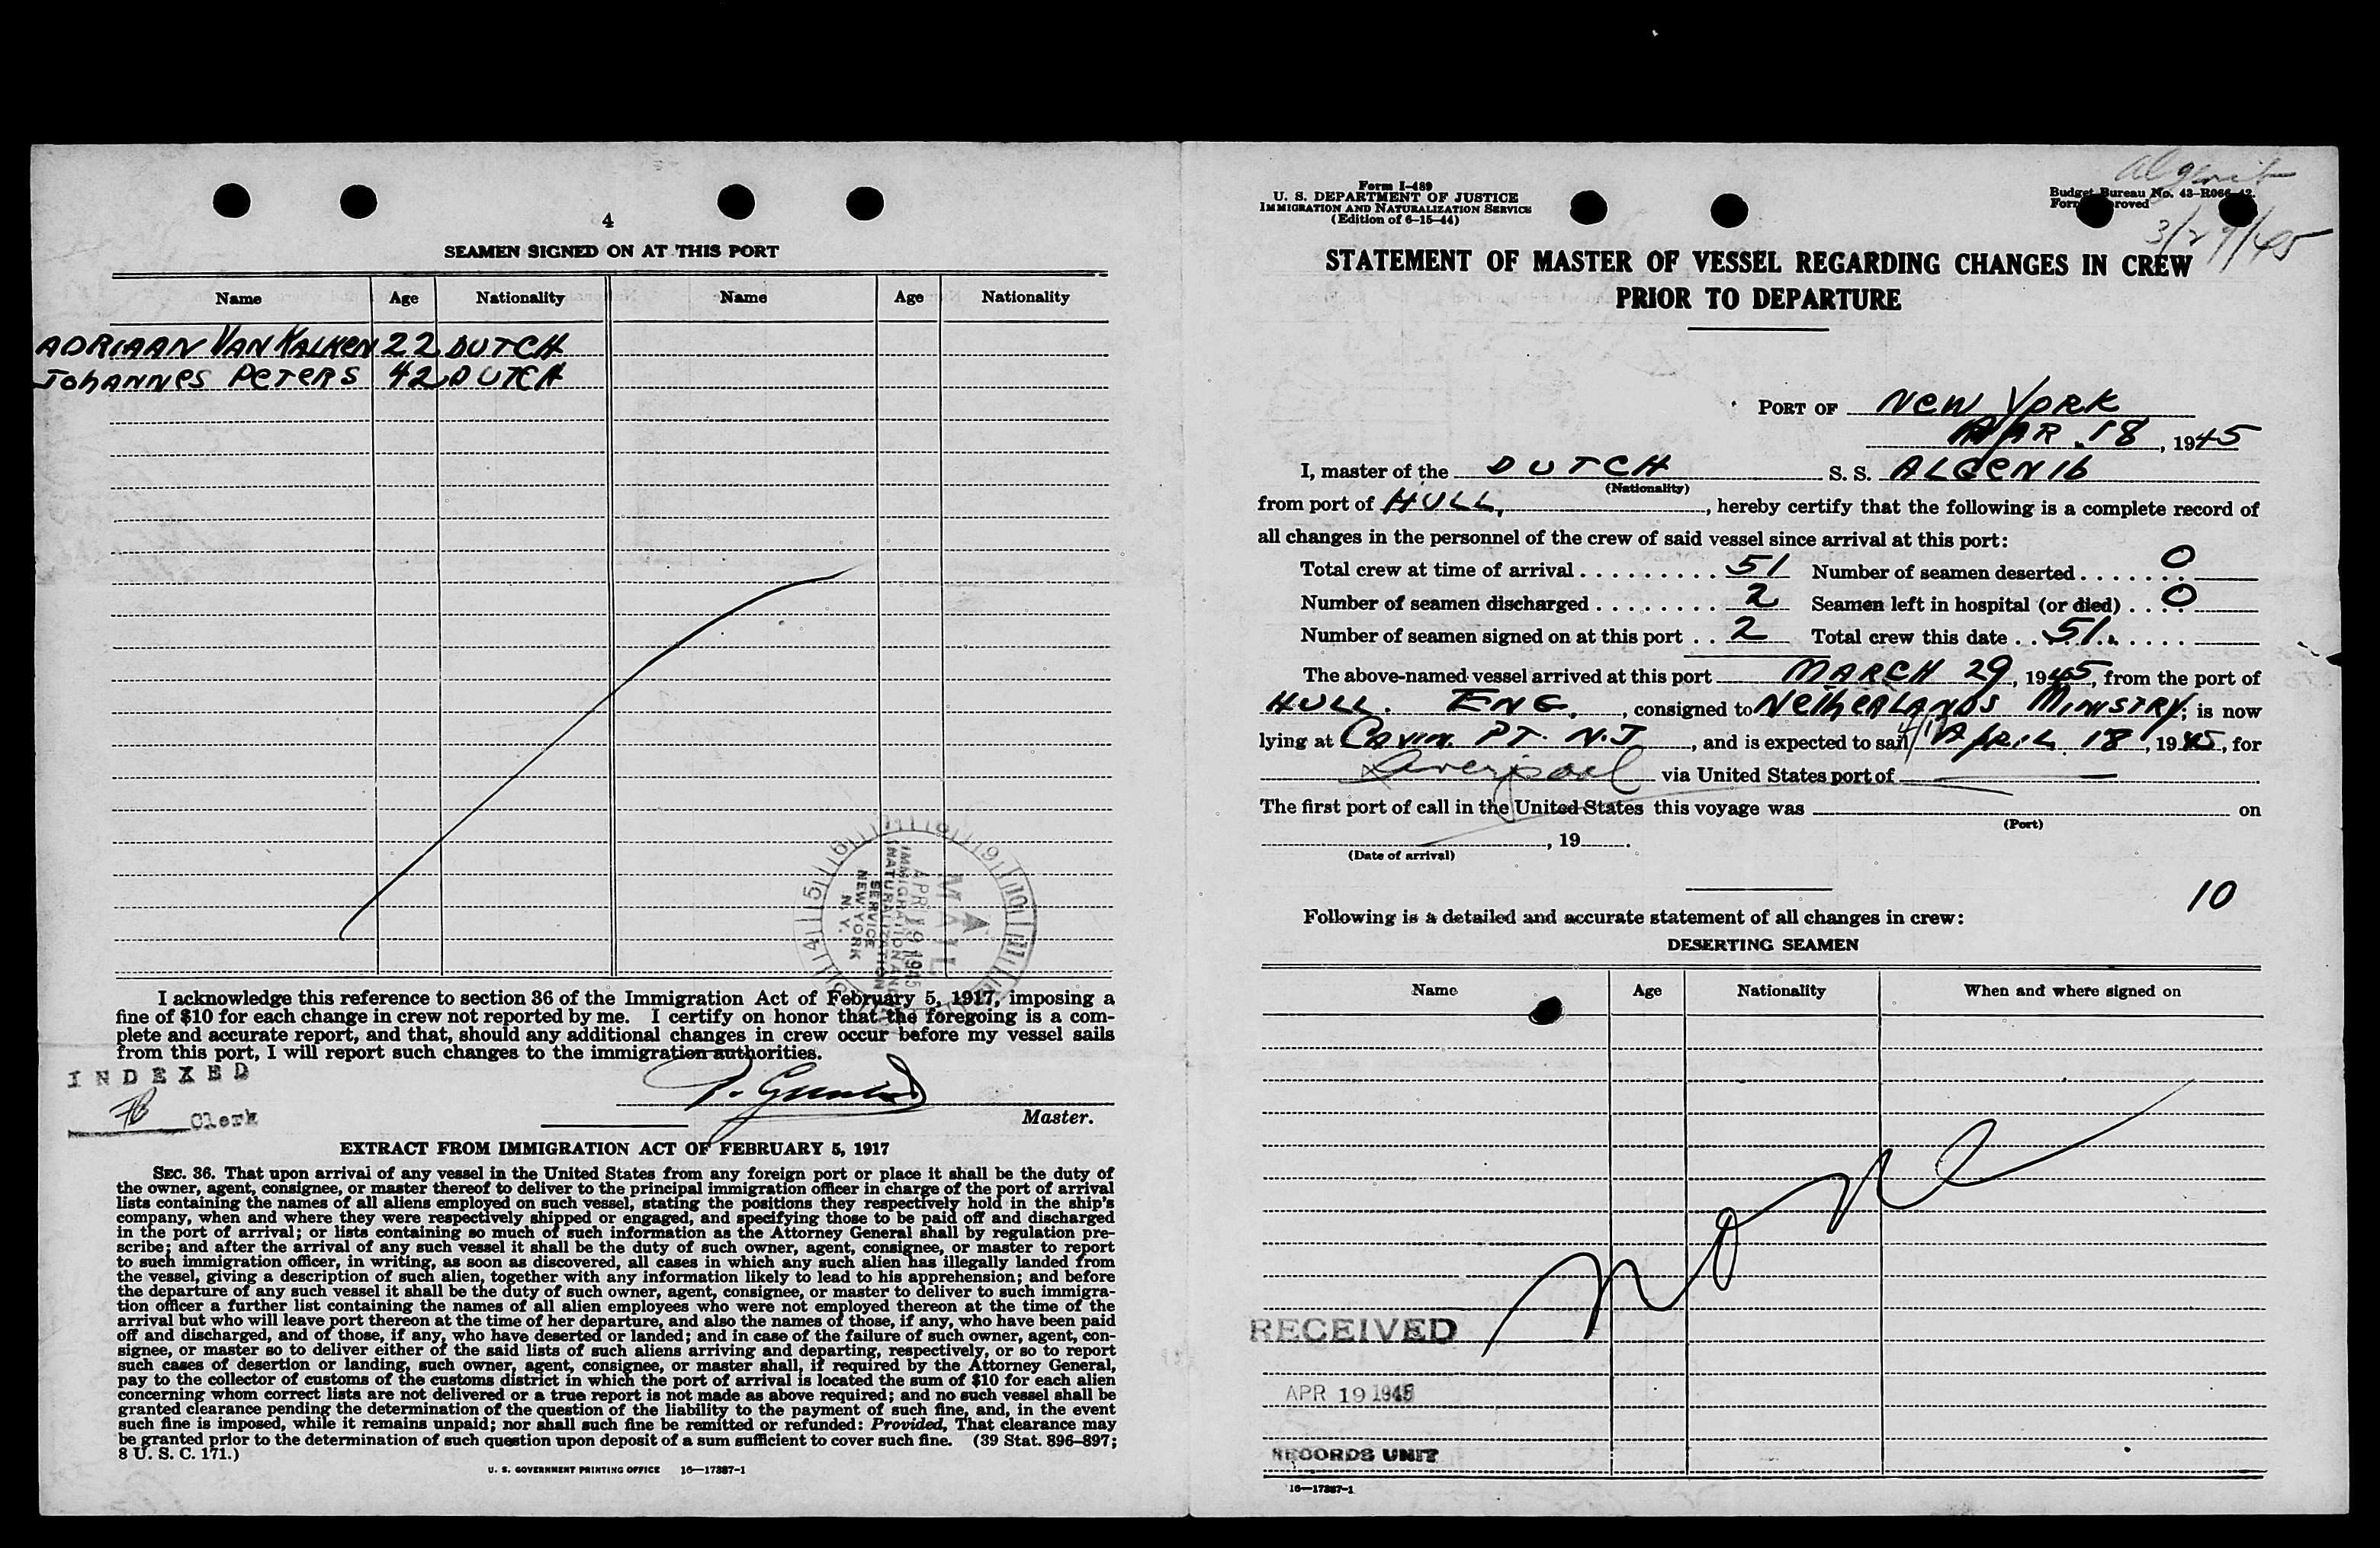 4
SEAMEN SIGNED ON AT THIS PORT
Name Age Nationality Name Age Nationality
ADRIAAN VAN KALKEN 22 DUTCH
JOhANNeS PeTeRS 42 DUTCH
MAIL
APR 19 1945
IMMIGRATION AND
NATURALIZATION
SERVICE
NEW YORK
N. Y.
I acknowledge this reference to section 36 of the Immigration Act of February 5, 1917, imposing a
fine of $10 for each change in crew not reported by me. I certify on honor that the foregoing is a com-
plete and accurate report, and that, should any additional changes in crew occur before my vessel sails
from this port, I will report such changes to the immigration authorities.
INDEXED
Clerk
Master.
EXTRACT FROM IMMIGRATION ACT OF FEBRUARY 5, 1917
SEC. 36. That upon arrival of any vessel in the United States from any foreign port or place it shall be the duty of
the owner, agent, consignee, or master thereof to deliver to the principal immigration officer in charge of the port of arrival
lists containing the names of all aliens employed on such vessel, stating the positions they respectively hold in the ship's
company, when and where they were respectively shipped or engaged, and specifying those to be paid off and discharged
in the port of arrival; or lists containing so much of such information as the Attorney General shall by regulation pre-
scribe; and after the arrival of any such vessel it shall be the duty of such owner, agent, consignee, or master to report
to such immigration officer, in writing, as soon as discovered, all cases in which any such alien has illegally landed from
the vessel, giving a description of such alien, together with any information likely to lead to his apprehension; and before
the departure of any such vessel it shall be the duty of such owner, agent, consignee, or master to deliver to such immigra-
tion officer a further list containing the names of all alien employees who were not employed thereon at the time of the
arrival but who will leave port thereon at the time of her departure, and also the names of those, if any, who have been paid
off and discharged, and of those, if any, who have deserted or landed; and in case of the failure of such owner, agent, con-
signee, or master so to deliver either of the said lists of such aliens arriving and departing, respectively, or so to report
such cases of desertion or landing, such owner, agent, consignee, or master shall, if required by the Attorney General,
pay to the collector of customs of the customs district in which the port of arrival is located the sum of $10 for each alien
concerning whom correct lists are not delivered or a true report is not made as above required; and no such vessel shall be
granted clearance pending the determination of the question of the liability to the payment of such fine, and, in the event
such fine is imposed, while it remains unpaid; nor shall such fine be remitted or refunded: Provided, That clearance may
be granted prior to the determination of such question upon deposit of a sum sufficient to cover such fine. (39 Stat. 896–897;
8 U. S. C. 171.)
U. S. GOVERNMENT PRINTING OFFICE 16—17387-1
Form I-489
U. S. DEPARTMENT OF JUSTICE
IMMIGRATION AND NATURALIZATION SERVICE
(Edition of 6-15-44)
Algenib
Budget Bureau No. 43-R066-42.
3/29/45
STATEMENT OF MASTER OF VESSEL REGARDING CHANGES IN CREW
PRIOR TO DEPARTURE
PORT OF NeW YORK
18, 1945
I, master of the DUTCH S. S. ALGeNIb
(Nationality)
from port of HULL, hereby certify that the following is a complete record of
all changes in the personnel of the crew of said vessel since arrival at this port:
Total crew at time of arrival 51 Number of seamen deserted 0
Number of seamen discharged 2 Seamen left in hospital (or died) 0
Number of seamen signed on at this port 2 Total crew this date 51
The above-named vessel arrived at this port MARCH 29, 1945, from the port of
HULL. ENG., consigned to NeTheRLANDS MINISTRY; is now
lying at CAVEN PT. N.J, and is expected to sail April 18, 1945, for
Liverpool via United States port of
The first port of call in the United States this voyage was on
(Port)
, 19 .
(Date of arrival)
10
Following is a detailed and accurate statement of all changes in crew:
DESERTING SEAMEN
Name Age Nationality When and where signed on
None
RECEIVED
APR 19 1945
RECORDS UNIT
16—17387-1